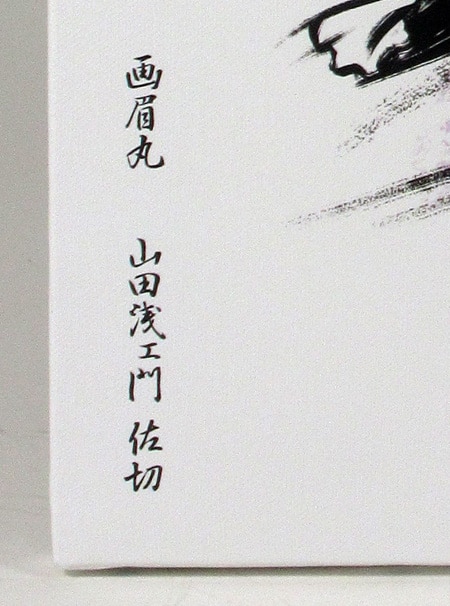 画眉丸
山田浅ェ門 佐切